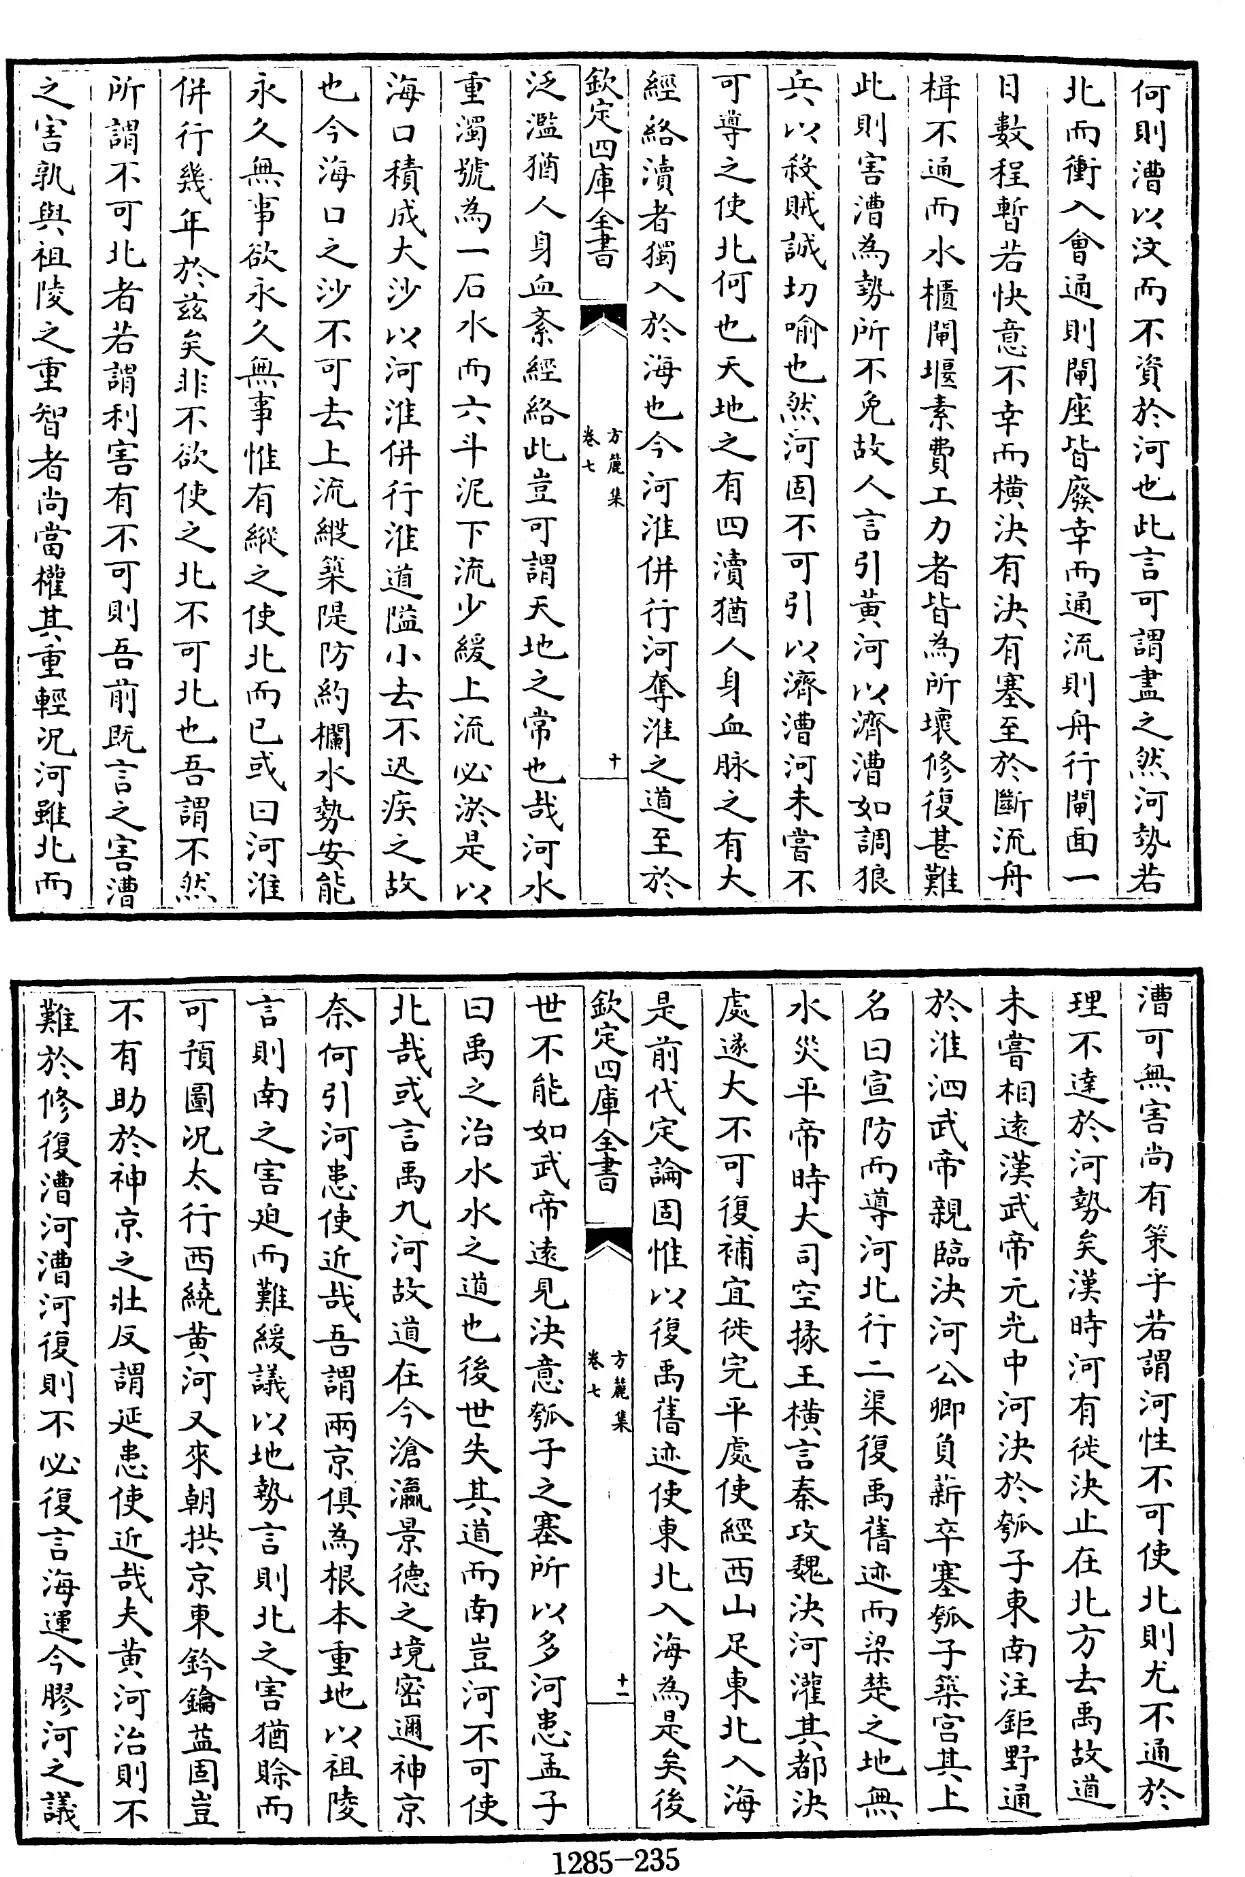 何則漕以汶而不資於河也此言可謂盡之然河勢若
北而衝入會通則閘座皆廢幸而通流則舟行閘面一
日數程暫若快意不幸而橫決有決有塞至於斷流舟
楫不通而水櫃閘堰素費工力者皆為所壞修復甚難
此則害漕為勢所不免故人言引黃河以濟漕如調狼
兵以殺賊誠切喻也然河固不可引以濟漕河未嘗不
可導之使北何也天地之有四瀆猶人身血脉之有大
經絡瀆者獨入於海也今河淮併行河奪淮之道至於
欽定四庫全書
方麓集
卷七
十
泛濫猶人身血紊經絡此豈可謂天地之常也哉河水
重濁號為一石水而六斗泥下流少緩上流必淤是以
海口積成大沙以河淮併行淮道隘小去不迅疾之故
也今海口之沙不可去上流縱築隄防約欄水勢安能
永久無事欲永久無事惟有縱之使北而已或曰河淮
併行幾年於茲矣非不欲使之北不可北也吾謂不然
所謂不可北者若謂利害有不可則吾前既言之害漕
之害孰與祖陵之重智者尚當權其重輕况河雖北而
漕可無害尚有策乎若謂河性不可使北則尤不通於
理不達於河勢矣漢時河有徙決止在北方去禹故道
未嘗相遠漢武帝元光中河決於瓠子東南注鉅野通
於淮泗武帝親臨決河公卿負薪卒塞瓠子築宮其上
名曰宣防而導河北行二渠復禹舊迹而梁楚之地無
水災平帝時大司空掾王橫言秦攻魏決河灌其都決
處遂大不可復補宜徙完平處使經西山足東北入海
是前代定論固惟以復禹舊迹使東北入海為是矣後
欽定四庫全書
方麓集
卷七
十一
世不能如武帝遠見決意瓠子之塞所以多河患孟子
曰禹之治水水之道也後世失其道而南豈河不可使
北哉或言禹九河故道在今滄瀛景德之境密邇神京
奈何引河患使近哉吾謂兩京俱為根本重地以祖陵
言則南之害迫而難緩議以地勢言則北之害猶賒而
可預圖况太行西繞黃河又來朝拱京東鈐鑰益固豈
不有助於神京之壯反謂延患使近哉夫黃河治則不
難於修復漕河漕河復則不必復言海運今膠河之議
1285-235